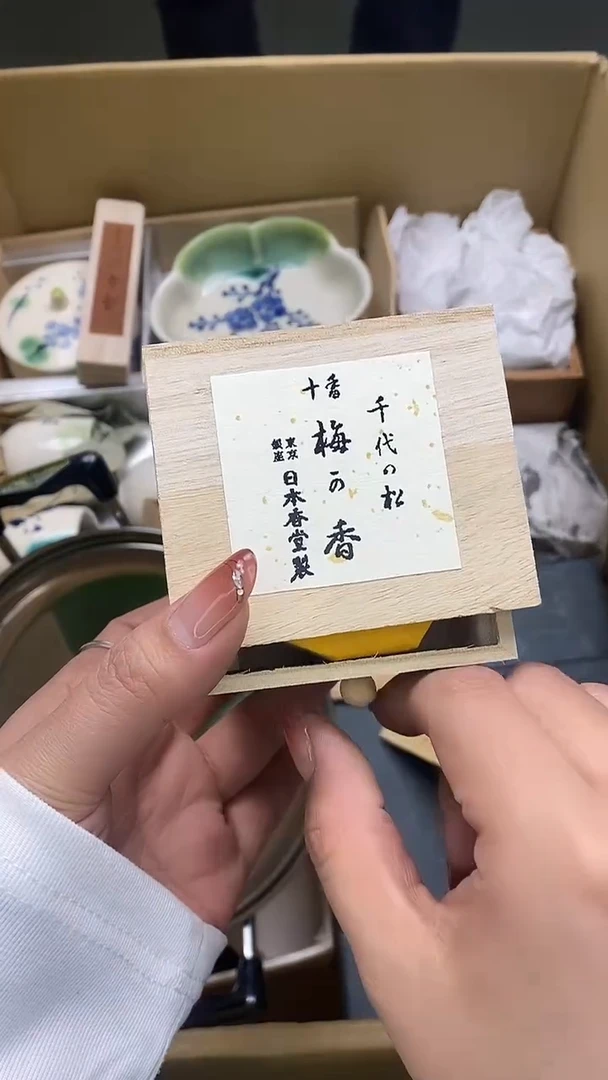 千代の松
十番
梅の香
東京
銀座
日本香堂製